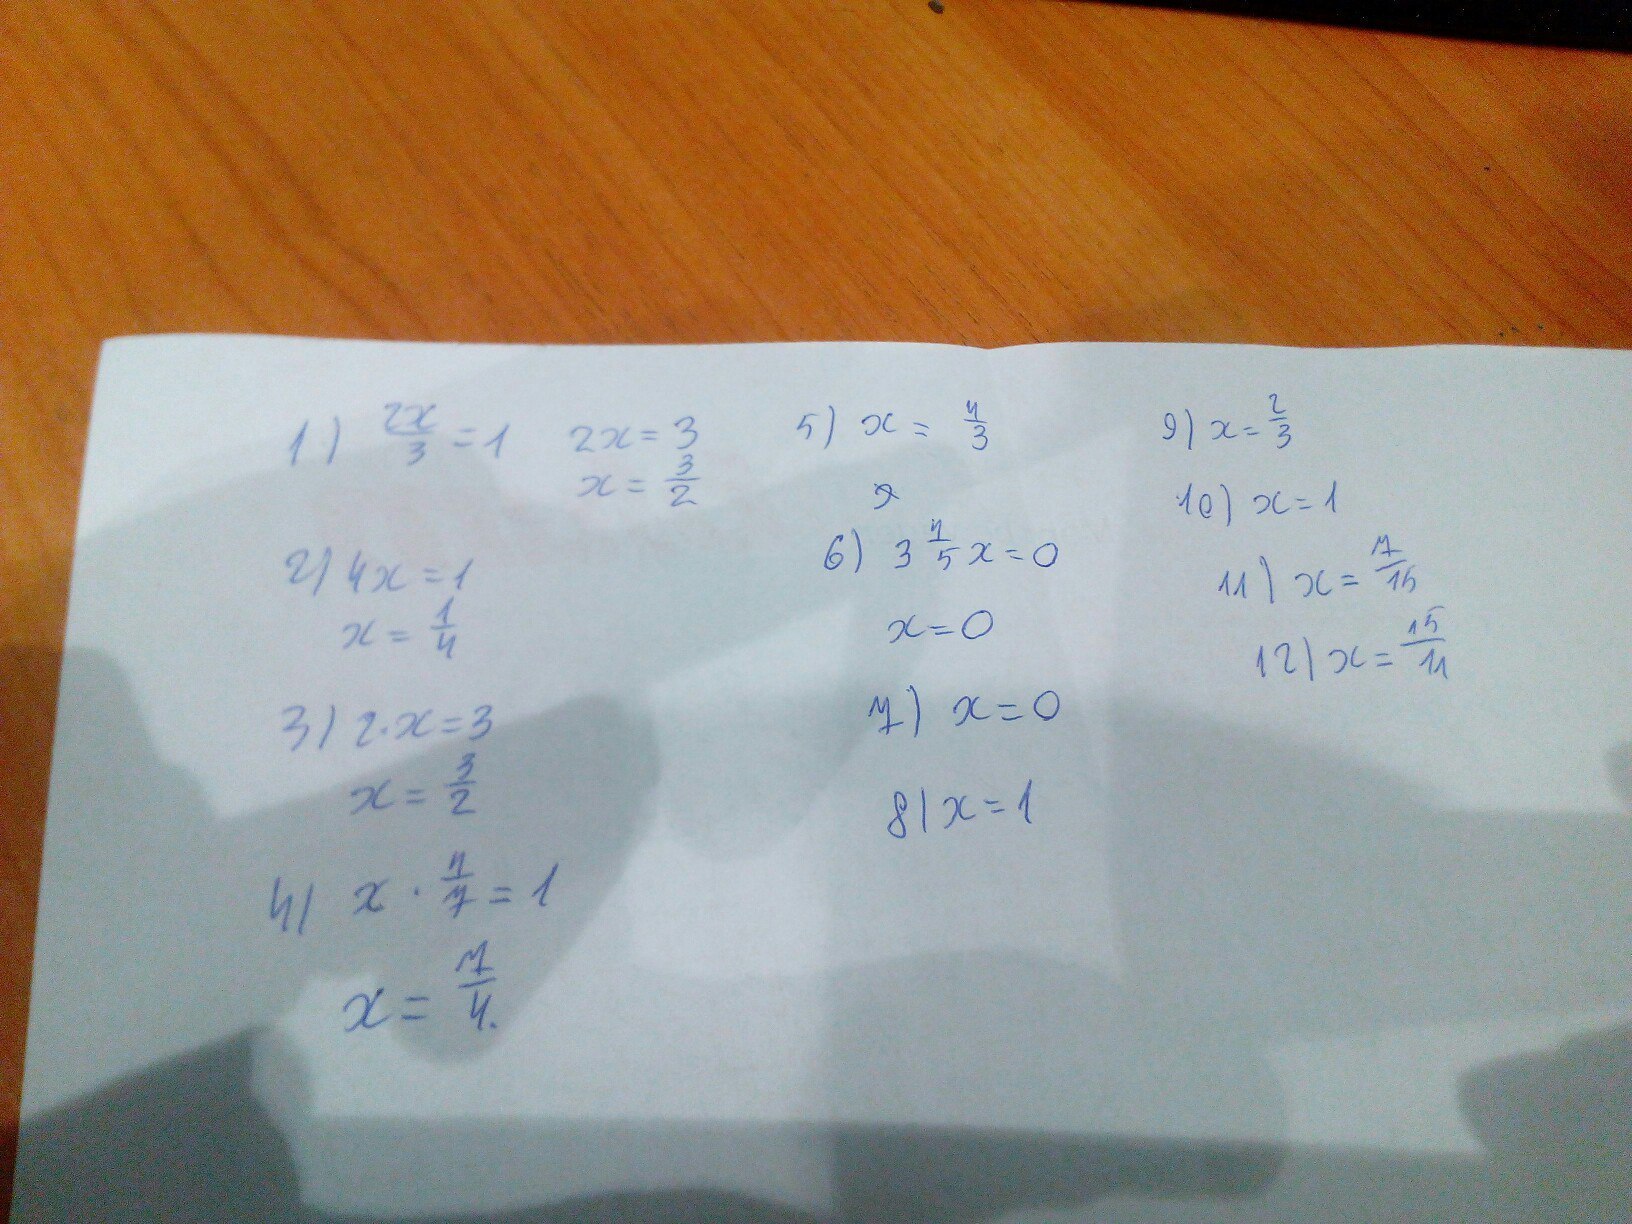 1) 2x/3 = 1 2x = 3
x = 3/2
2) 4x = 1
x = 1/4
3) 2·x = 3
x = 3/2
4) x · 4/7 = 1
x = 7/4.
5) x = 4/3
x
6) 3 1/5 x = 0
x = 0
7) x = 0
8) x = 1
9) x = 2/3
10) x = 1
11) x = 7/15
12) x = 15/11